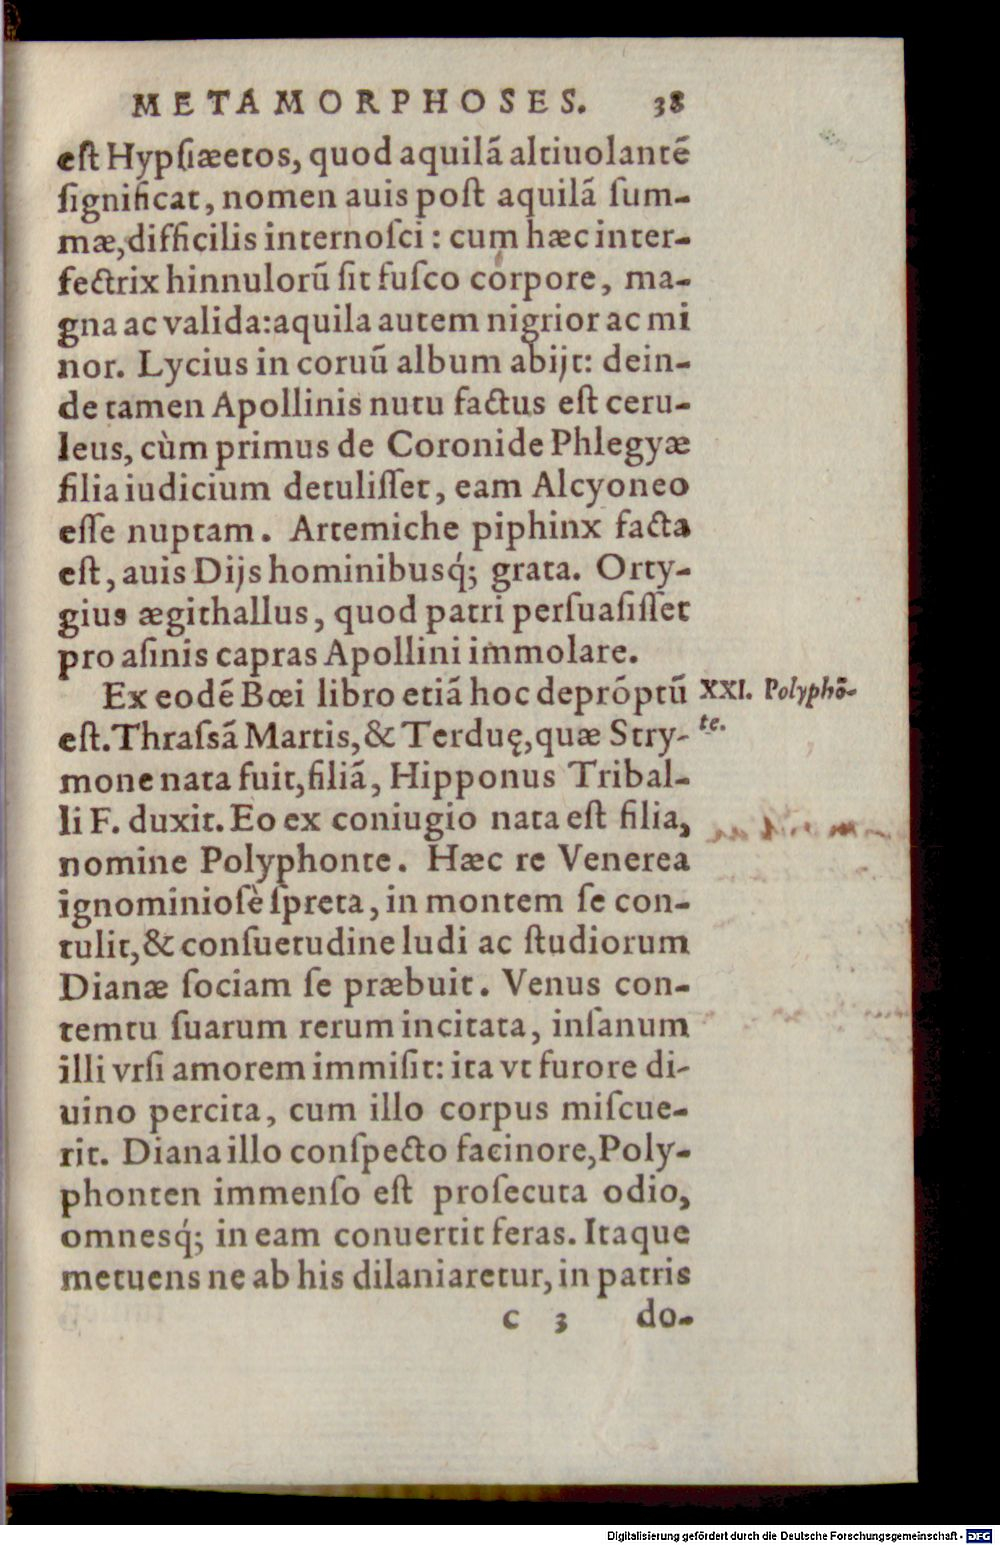 METAMORPHOSES. 38
eſt Hypſiæetos, quod aquilã altiuolantẽ
ſignificat, nomen auis poſt aquilã ſum-
mæ, difficilis internoſci: cum hæc inter-
fectrix hinnulorũ ſit fuſco corpore, ma-
gna ac valida: aquila autem nigrior ac mi
nor. Lycius in coruũ album abijt: dein-
de tamen Apollinis nutu factus eſt ceru-
leus, cùm primus de Coronide Phlegyæ
filia iudicium detuliſſet, eam Alcyoneo
eſſe nuptam. Artemiche piphinx facta
eſt, auis Dijs hominibusq́; grata. Orty-
gius ægithallus, quod patri perſuaſiſſet
pro aſinis capras Apollini immolare.
Ex eodẽ Bœi libro etiã hoc deprõptũ
XXI. Polyphõ-
te.
eſt. Thraſsã Martis, & Terduę, quæ Stry-
mone nata fuit, filiã, Hipponus Tribal-
li F. duxit. Eo ex coniugio nata eſt filia,
nomine Polyphonte. Hæc re Venerea
ignominioſè ſpreta, in montem ſe con-
tulit, & conſuetudine ludi ac ſtudiorum
Dianæ ſociam ſe præbuit. Venus con-
temtu ſuarum rerum incitata, inſanum
illi vrſi amorem immiſit: ita vt furore di-
uino percita, cum illo corpus miſcue-
rit. Diana illo conſpecto facinore, Poly-
phonten immenſo eſt proſecuta odio,
omnesq́; in eam conuertit feras. Itaque
metuens ne ab his dilaniaretur, in patris
c 3 do-
Digitalisierung gefördert durch die Deutsche Forschungsgemeinschaft - DFG